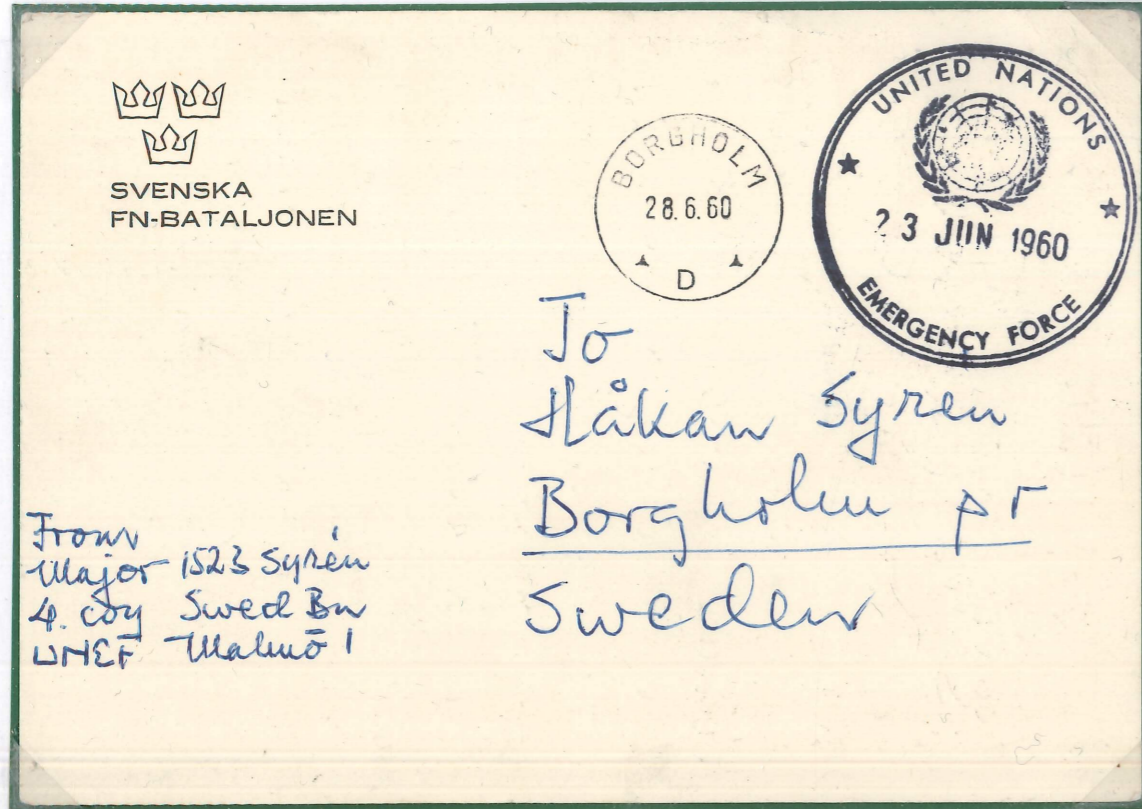 SVENSKA
FN-BATALJONEN
BORGHOLM
28.6.60
D
UNITED NATIONS
23 JUN 1960
EMERGENCY FORCE
To
Håkan Syren
Borgholm pr
Sweden
From
Major 1523 Syrén
4. coy Swed Bn
UNEF Malmö 1